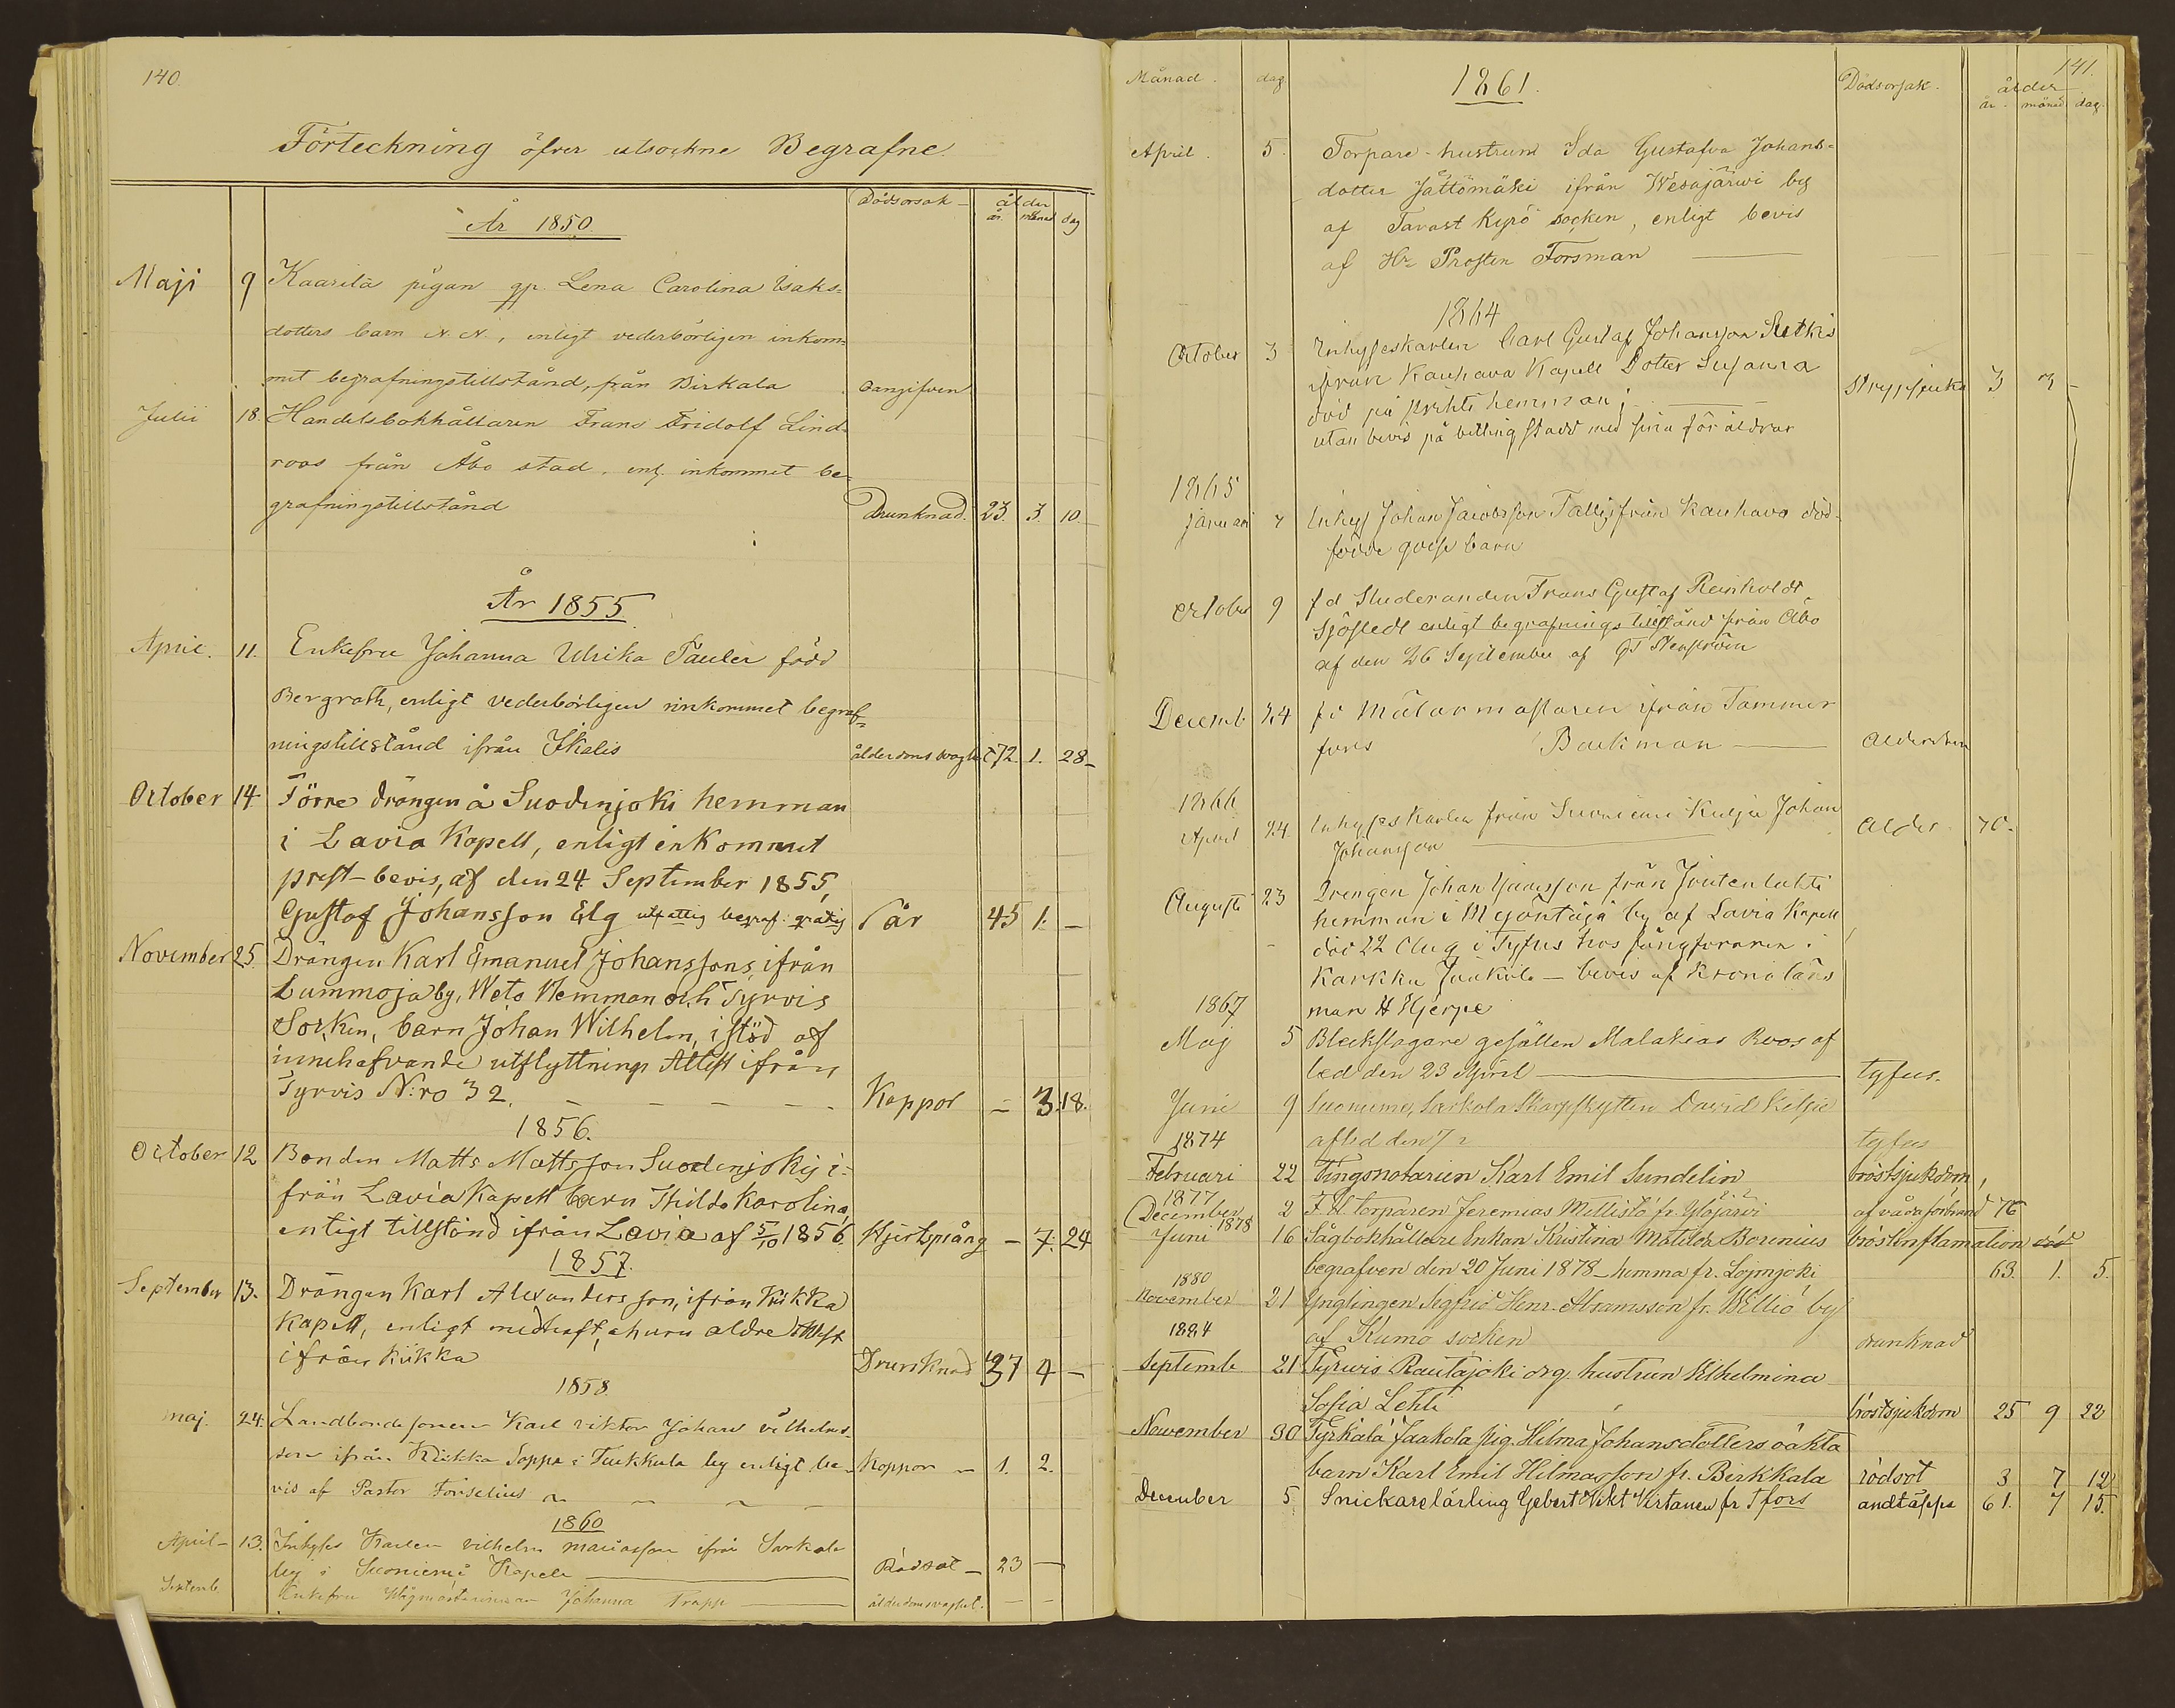 140.
Förteckning öfver utsockne Begrafne.
Dödsorsak ålder
år månad dag
År 1850.
Maji 9 Kaarila pigan Lena Carolina Isaks-
dotters barn N. N., enligt vederbörligen inkom-
met begrafningstillstånd, från Birkala oangifven
Julii 18. Handelsbokhållaren Frans Fridolf Lind-
roos från Åbo stad, enl. inkommet be-
grafningstillstånd Drunknad. 23. 3. 10.
År 1855
April. 11. Enkefru Johanna Ulrika Pauler född
Bergroth, enligt vederbörligen inkommet begraf-
ningstillstånd ifrån Ikalis 72. 1. 28
October 14. Förre drängen å Suodenjoki hemman
i Lavia Kapell, enligt inkommet
prest-bevis, af den 24 September 1855,
Gustaf Johansson Elg utfattig begraf: gratis Sår 45 1. –
November 25. Drängen Karl Emanuel Johanssons, ifrån
Lummoja by, Weto Hemman och Tyrvis
Socken, barn Johan Wilhelm, i stöd af
innehafvande utflyttnings Attest ifrån
Tyrvis N:ro 32. Koppor – 3. 18.
1856.
October 12 Bonden Matts Mattsson Suodenjokis i-
från Lavia Kapell barn Hilda Karolina,
enligt tillstånd ifrån Lavia af 5/10 1856. – 7. 24
1857.
September 13. Drängen Karl Alexandersson, ifrån Kiikka
Kapell, enligt medhaft, ehuru äldre attest
ifrån Kiikka Drunknad 37 4 –
1858.
maj. 24. Landbondesonen Karl Viktor Johan Vilhelms-
son ifrån Kiikka Soppa i Tuukkala by enligt be- Koppor 1. 2.
vis af Pastor Forselius
1860
April 13. Inhyses Karlen Vilhelm ifrån Sarkola
by i Suoniemi Kapell Rödsot 23
Septemb. Enkefru Johanna Trapp ålderdomsvaghet.
Månad. dag 1861. Dödsorsak. ålder 141.
år. månad dag.
April. 5. Torpare-hustrun Ida Gustafva Johans-
dotter Jättömäki ifrån Wesajärwi by
af Tavast Kyrö socken, enligt bevis
af Hr Prosten Forsman
1864
October 3 Inhyseskarlen Carl Gustaf Johansson
ifrån Kauhava Kapell Dotter Susanna strypsjuka 3 3 –
död på hemman;
utan bevis på stadd med sina föräldrar
1865
Januari 7 Inhys Johan Jacobsson ifrån Kauhava död-
födde barn
October 9 fd Studeranden Frans Gustaf Reinholdt
Sjöstedt enligt begrafnings tillstånd från Åbo
af den 26 September af
Decemb 24 fd Målarmästaren ifrån Tammer
fors Backman
1866
April 24 Inhyseskarlen från Suoniemi Kulju Johan Ålder 70.
Johansson
Augusti 23 Drengen Johan från
hemman i by af Lavia Kapell
död 22 Aug i Tyfus hos fångforaren i
Karkku – bevis af Kronoläns
man H Hjerpe
1867
Maj 5 Bleckslagare gesällen Malakias Roos af
led den 23 April tyfus.
Juni 9 Suoniemi, Sarkola Skarpskytten David
afled den 7 tyfus
1874
Februari 22 Tingsnotarien Karl Emil Sundelin bröstsjukdom,
1877
December 2 F. d. torparen Jeremias fr. Ylöjärvi af vådaförbränd 76
1878
Juni 16 Sågbokhållare Enkan Kristina Matilda Borenius bröstinflamation
begrafven den 20 Juni 1878 – hemma fr. Loimijoki 63. 1. 5.
1880
November 21 Ynglingen Segfrid Henr. Abramsson fr. Willio by
af Kumo socken drunknad
1884
Septemb 21 Tyrwis Rautajoki drg. hustrun Wilhelmina
Sofia Lehti bröstsjukdom 25 9 22
November 30 Tyrkälä Jaakola pig. Hilma Johansdotters oäkta
barn Karl Emil Hilmasson fr. Birkkala rödsot 3 7 12
December 5 Snickarelärling Gebert Vikt Virtanen fr Tfors andtäppa 61. 7 15.